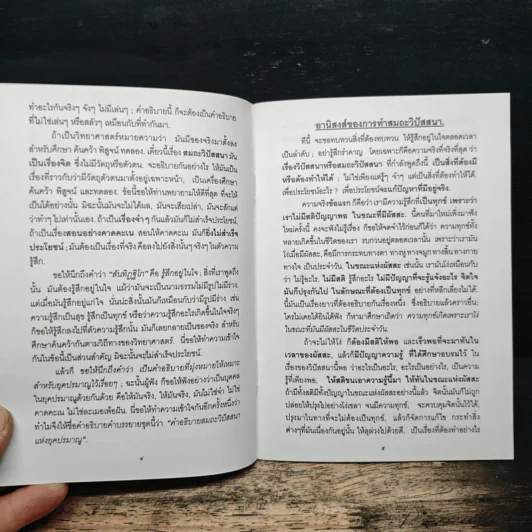 ทำอะไรกันจริงๆ จังๆ ไม่มีเล่นๆ ; คำอธิบายนี้ ก็จะต้องเป็นคำอธิบาย
ที่ไม่ใช่เล่นๆ หรือสลัวๆ เหมือนกับที่ทำกันมา.
ถ้าเป็นวิทยาศาสตร์หมายความว่า มันมีของจริงมาตั้งลง
สำหรับศึกษา ค้นคว้า พิสูจน์ ทดลอง. เดี๋ยวนี้เรื่อง สมถะวิปัสสนา มัน
เป็นเรื่องจิต ซึ่งไม่มีวัตถุหรือตัวตน. จะอธิบายกันอย่างไร ให้มันเป็น
เรื่องที่ราวกับว่ามีวัตถุตัวตนมาตั้งอยู่เฉพาะหน้า, เป็นเครื่องศึกษา
ค้นคว้า พิสูจน์ และทดลอง. ข้อนี้ขอให้ท่านพยายามให้ดีที่สุด ที่จะให้
เป็นได้อย่างนั้น มิฉะนั้นจะไม่ได้ผล, มันจะเสียเปล่า, มันจะสักแต่
ว่าทำๆ ไปเท่านั้นเอง. ถ้าเป็นเรื่องจำๆ กันแล้วมันไม่สำเร็จประโยชน์,
ถ้าเป็นเรื่องสอนอย่างคาดคะเน สอนให้คาดคะเน มันก็ยิ่งไม่สำเร็จ
ประโยชน์ ; มันต้องเป็นเรื่องที่จริง คือลงไปยังสิ่งนั้นๆ จริงๆ ในตัวความ
รู้สึก.
ขอให้นึกถึงคำว่า "สันทิฏฐิโก" คือ รู้สึกอยู่ในใจ ; สิ่งที่เราพูดถึง
นั้น มันต้องรู้สึกอยู่ในใจ แม้ว่ามันจะเป็นนามธรรมไม่มีรูปไม่มีร่าง,
แต่เมื่อมันรู้สึกอยู่แก่ใจ นั่นน่ะสิ่งนั้นมันก็เหมือนกับว่ามีรูปมีร่าง เช่น
ความรู้สึกเป็นสุข รู้สึกเป็นทุกข์ หรือว่าความรู้สึกอะไรเกิดขึ้นในใจจริงๆ
ก็ขอให้รู้สึกลงไปที่ตัวความรู้สึกนั้น มันก็เลยกลายเป็นของจริง สำหรับ
ศึกษาค้นคว้ากันตามวิถีทางของวิทยาศาสตร์. นี่ขอให้ทำความเข้าใจ
กันในข้อนี้เป็นส่วนสำคัญ มิฉะนั้นจะไม่สำเร็จประโยชน์.
แล้วก็ ขอให้นึกถึงคำว่า เป็นคำอธิบายที่มุ่งหมายให้เหมาะ
สำหรับยุคปรมาณูไว้เรื่อยๆ ; ฉะนั้นผู้ฟัง ก็ขอให้ฟังอย่างว่าเป็นบุคคล
ในยุคปรมาณูด้วยกันด้วย คือให้มันจริง, ให้มันจริง, มันไม่ใช่จำ ไม่ใช่
คาดคะเน ไม่ใช่ละเมอเพ้อฝัน. นี่ขอให้ทำความเข้าใจกันอีกครั้งหนึ่งว่า
ทำไมจึงให้ชื่อคำอธิบายคำบรรยายชุดนี้ว่า "คำอธิบายสมถะวิปัสสนา
แห่งยุคปรมาณู".
๔
อานิสงส์ของการทำสมถะวิปัสสนา.
ทีนี้ จะขอทบทวน สิ่งที่ต้องทบทวน ให้รู้สึกอยู่ในใจตลอดเวลา
เป็นลำดับๆ ; อย่ารู้สึกรำคาญ โดยเฉพาะก็คือความจริงที่จริงที่สุด ว่า
เรื่องวิปัสสนาหรือสมถะวิปัสสนา ที่กำลังพูดถึงนี้ เป็นสิ่งที่ต้องมี
หรือต้องทำให้ได้ ; ไม่ใช่เพียงแต่รู้ๆ จำๆ แต่เป็นสิ่งที่ต้องทำให้ได้
เพื่อประโยชน์อะไร? เพื่อประโยชน์จะแก้ปัญหาที่มีอยู่จริง.
ความจริงข้อแรก ก็คือว่า เรามีความรู้สึกที่เป็นทุกข์ เพราะว่า
เราไม่มีสติปัญญาพอ ในขณะที่มีผัสสะ. นี่คนที่มาใหม่เพิ่งมาฟัง
ใหม่ครั้งนี้ คงจะฟังไม่รู้เรื่อง ก็ขอให้จดจำไว้ก่อนก็ได้ว่า ความทุกข์ทั้ง
หลายเกิดขึ้นในชีวิตของเรา รบกวนอยู่ตลอดเวลานั้น เพราะว่าเรามัน
โง่เมื่อมีผัสสะ, คือมีการกระทบทางตา ทางหู ทางจมูก ทางลิ้น ทางกาย
ทางใจ เป็นประจำวัน. ในขณะแห่งผัสสะ เช่นนั้น เรามันโง่เหมือนกับ
ว่า ไม่รู้อะไร, ไม่มีสติ รู้สึกอะไร, ไม่มีปัญญาที่จะรู้แจ้งอะไร จิตใจ
มันก็ปรุงกันไป ในลักษณะที่จะต้องเป็นทุกข์ อย่างที่หลีกเลี่ยงไม่ได้.
นี่มันเป็นเรื่องยาวที่ต้องอธิบายกันเรื่องหนึ่ง ซึ่งอธิบายแล้วคราวอื่น;
ใครไม่เคยได้ยินได้ฟัง ก็หามาศึกษาเอาเองว่า ความทุกข์เกิดเพราะเราโง่
ในขณะที่มันมีผัสสะในชีวิตประจำวัน.
ถ้าจะไม่ให้โง่ ก็ต้องมีสติให้พอ และเร็วพอที่จะมาทันใน
เวลาของผัสสะ, แล้วก็มีปัญญาความรู้ ที่ได้ศึกษาอบรมไว้ ใน
เรื่องของวิปัสสนานี้พอ ว่าอะไรเป็นอะไร, อะไรเป็นอย่างไร, เป็นความ
รู้ที่เพียงพอ, ให้สติขนเอาความรู้นี้มา ให้ทันในขณะแห่งผัสสะ
ถ้ามีทั้งสติมีทั้งปัญญามาทันในขณะแห่งผัสสะอย่างนี้แล้ว จิตนั้นมันก็ไม่ถูก
ปล่อยให้ปรุงไปอย่างโง่เขลา จนมีความทุกข์, จะควบคุมจิตนั้นไว้ได้,
ปรุงมาในทางที่จะไม่เป็นทุกข์, แล้วก็จัดการแก้ไข กระทำสิ่ง
ต่างๆที่มันเนื่องกันอยู่นั้น ให้ลุล่วงไปด้วยดี. เป็นเรื่องที่ต้องทำอย่างไร
๕